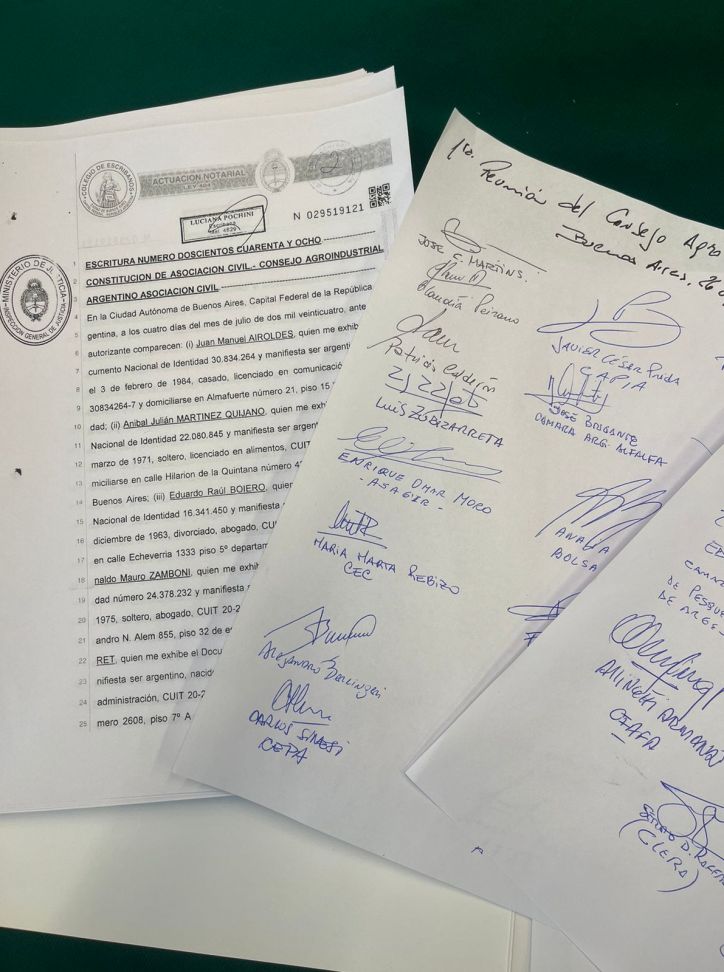 COLEGIO DE ESCRIBANOS
ACTUACION NOTARIAL
LEY 404
LUCIANA POCHINI
Escribana
Mat. 4829
N 029519121
MINISTERIO DE JUSTICIA
INSPECCION GENERAL DE JUSTICIA
1 ESCRITURA NUMERO DOSCIENTOS CUARENTA Y OCHO
2 CONSTITUCION DE ASOCIACION CIVIL - CONSEJO AGROINDUSTRIAL
3 ARGENTINO ASOCIACION CIVIL
4 En la Ciudad Autónoma de Buenos Aires, Capital Federal de la República
5 gentina, a los cuatro días del mes de julio de dos mil veinticuatro, ante
6 autorizante comparecen: (i) Juan Manuel AIROLDES, quien me exhib
7 cumento Nacional de Identidad 30.834.264 y manifiesta ser argent
8 el 3 de febrero de 1984, casado, licenciado en comunicació
9 30834264-7 y domiciliarse en Almafuerte número 21, piso 15
10 dad; (ii) Anibal Julián MARTINEZ QUIJANO, quien me exh
11 Nacional de Identidad 22.080.845 y manifiesta ser argen
12 marzo de 1971, soltero, licenciado en alimentos, CUIT
13 miciliarse en calle Hilarion de la Quintana número 4
14 Buenos Aires; (iii) Eduardo Raúl BOIERO, quien me
15 Nacional de Identidad 16.341.450 y manifiesta
16 diciembre de 1963, divorciado, abogado, CU
17 en calle Echeverria 1333 piso 5º departam
18 naldo Mauro ZAMBONI, quien me exhi
19 dad número 24.378.232 y manifiesta
20 1975, soltero, abogado, CUIT 20-2
21 andro N. Alem 855, piso 32 de e
22 RET, quien me exhibe el Docu
23 nifiesta ser argentino, nacid
24 administración, CUIT 20-2
25 mero 2608, piso 7º A
1ra. Reunión del Consejo Agro
Buenos Aires, 26
JOSE C. MARTINS.
Claudia Peirano
Patricia Calderón
LUIS ZUBIZARRETA
ENRIQUE OMAR MORO
- ASAGIR -
MARIA MARTA REBIZO
CEC
Alejandro Berlingeri
CARLOS SINESI
CEPA
JAVIER CÉSAR Prida
CAPIA
JOSÉ BRIGANTE
CAMARA ARG. ALFALFA
ANALIA
BOLSA
DE PESQUE
DE ARGE
CIAFA
(CLERA)